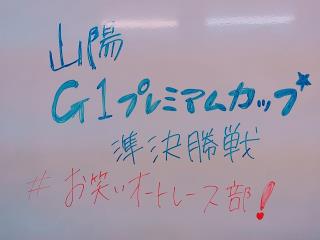 山陽
G1プレミアムカップ★
準決勝戦
#お笑いオートレース部!